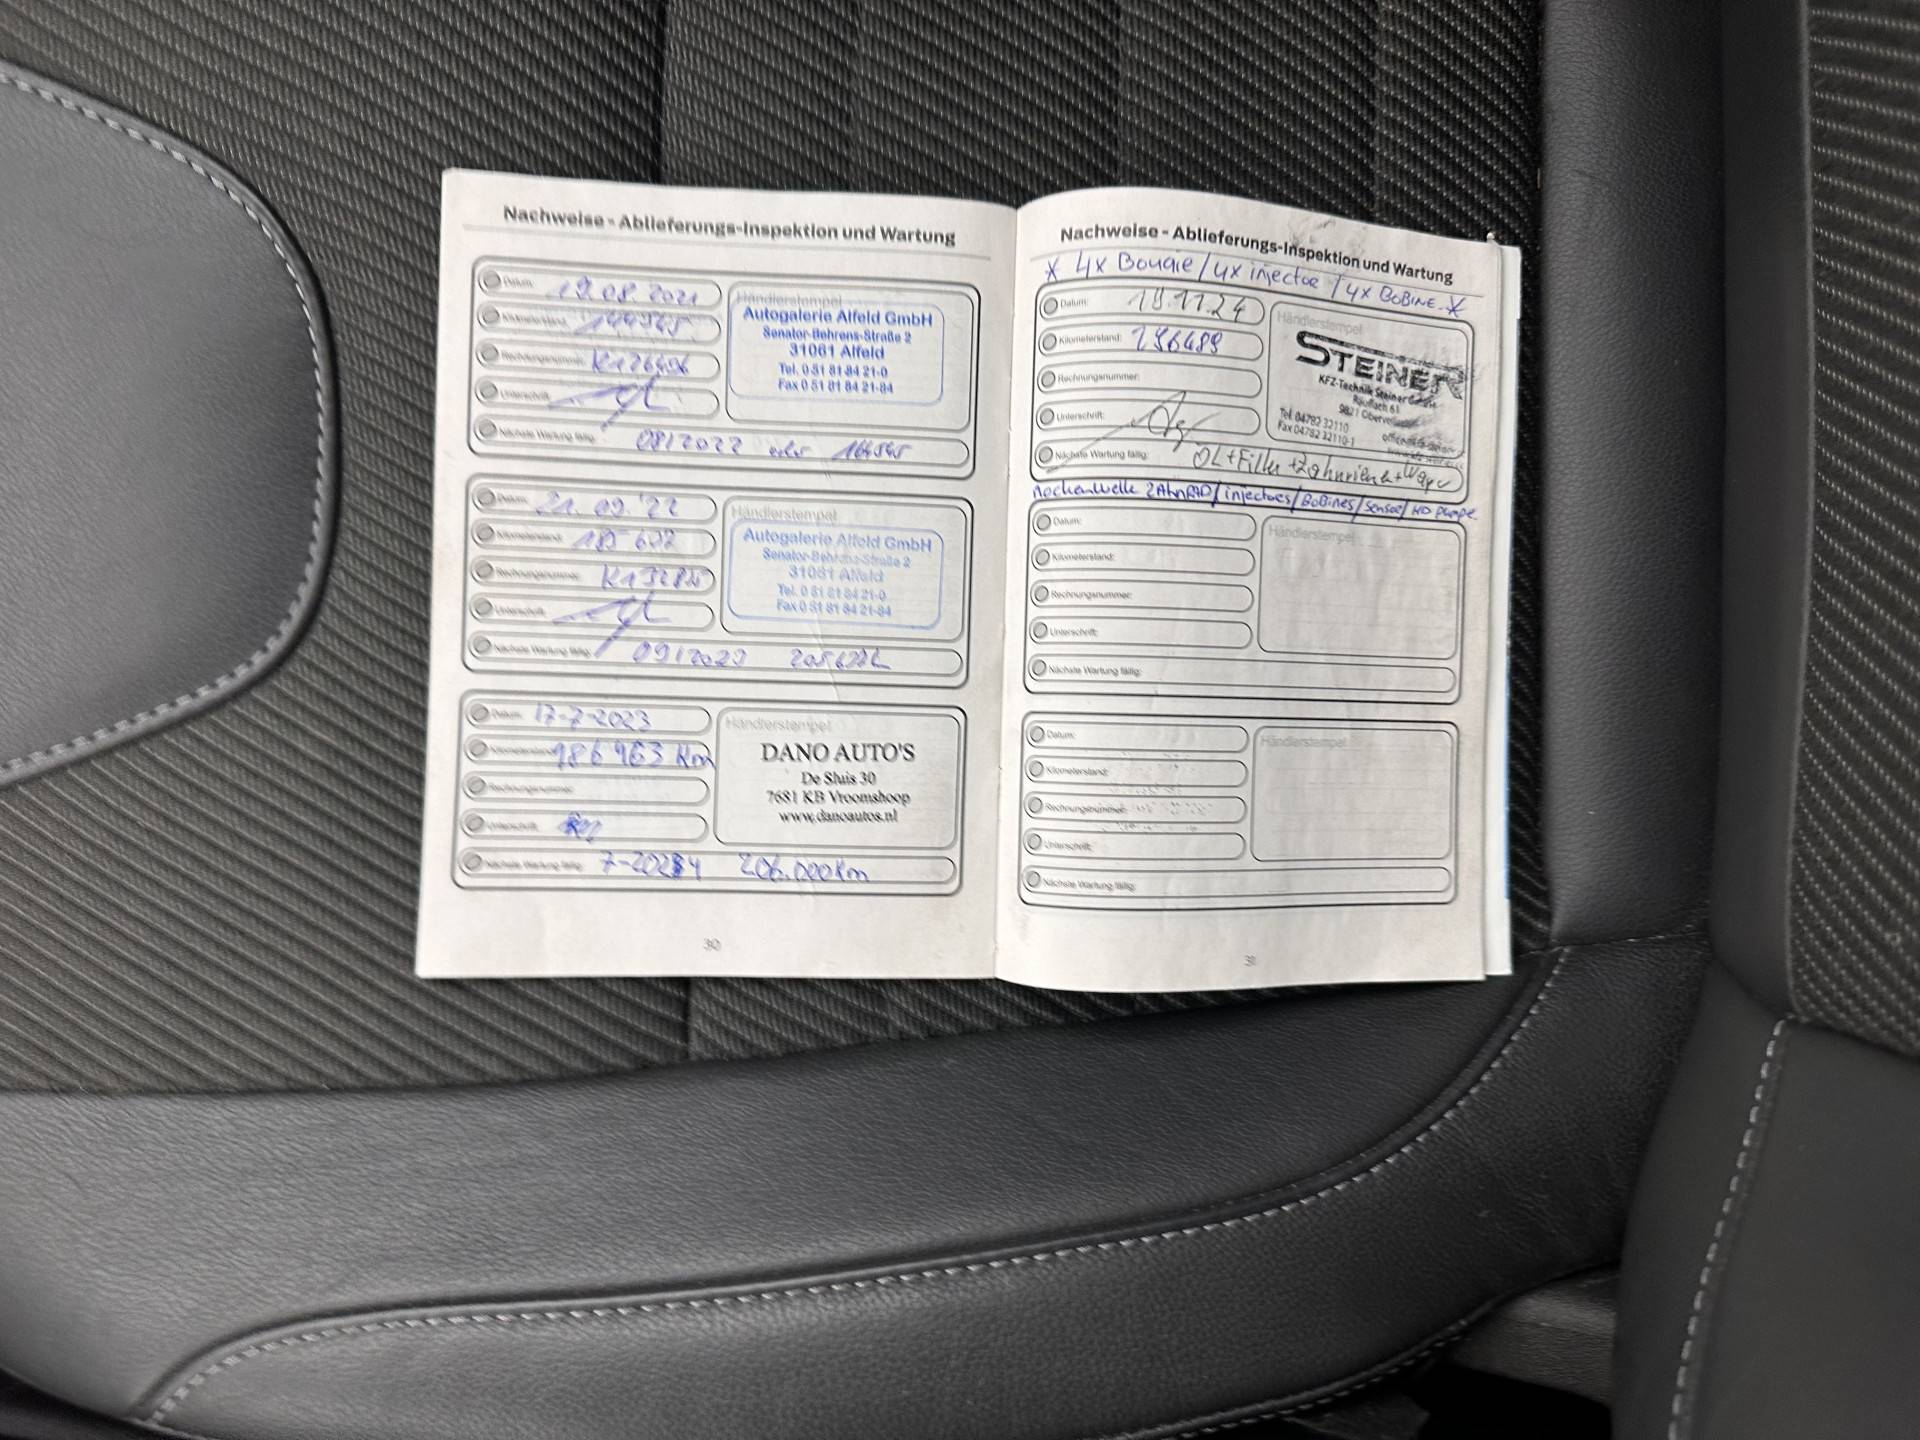 Nachweise - Ablieferungs-Inspektion und Wartung
Datum: 19.08.2021
Kilometerstand: 144545
Rechnungsnummer: K126496
Unterschrift:
Nächste Wartung fällig: 08/2022 oder 164545
Händlerstempel
Autogalerie Alfeld GmbH
Senator-Behrens-Straße 2
31061 Alfeld
Tel. 0 51 81 84 21-0
Fax 0 51 81 84 21-84
Datum: 21.09.'22
Kilometerstand: 185 602
Rechnungsnummer:
Unterschrift:
Nächste Wartung fällig: 09/2023
Händlerstempel
Autogalerie Alfeld GmbH
Senator-Behrens-Straße 2
31061 Alfeld
Tel. 0 51 81 84 21-0
Fax 0 51 81 84 21-84
Datum: 17-7-2023
Kilometerstand: 186 963 Km
Rechnungsnummer:
Unterschrift:
Nächste Wartung fällig: 7-2024 206.000 Km
Händlerstempel
DANO AUTO'S
De Sluis 30
7681 KB Vroomshoop
www.danoautos.nl
30
Nachweise - Ablieferungs-Inspektion und Wartung
* 4x Bougie / 4x injector / 4x BoBiNE. *
Datum: 19.11.24
Kilometerstand: 296489
Rechnungsnummer:
Unterschrift:
Nächste Wartung fällig: ÖL+Filter+Zahnriemen+Wapu
Händlerstempel
STEINER
KFZ-Technik Steiner GmbH
Rauflach 61
9821 Obervellach
Tel. 04782 32110
Fax 04782 32110-1
Nockenwelle ZAhnRAD / injectors / BoBines / sensor / HD pumpe
Datum:
Kilometerstand:
Rechnungsnummer:
Unterschrift:
Nächste Wartung fällig:
Händlerstempel
Datum:
Kilometerstand:
Rechnungsnummer:
Unterschrift:
Nächste Wartung fällig:
Händlerstempel
31